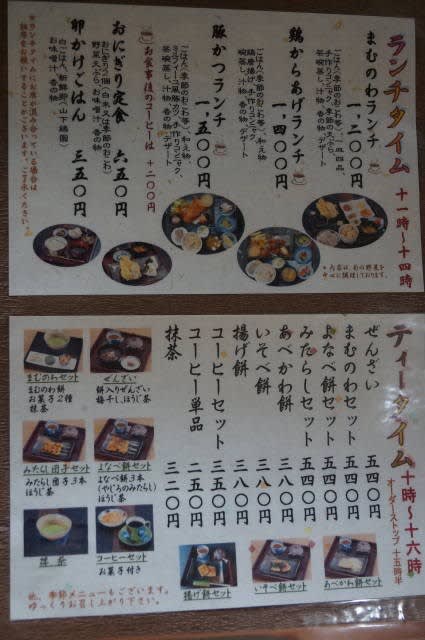 ランチタイム 十一時～十四時
まむのわランチ 一,二〇〇円
ごはん(季節のおこわ等)、一皿四品、
手作りコンニャク、季節の天ぷら、
茶碗蒸し、汁物、香の物、デザート
鶏からあげランチ 一,四〇〇円
ごはん(季節のおこわ等)、和え物
鶏唐揚げ、手作りコンニャク、
茶碗蒸し、汁物、香の物、デザート
豚かつランチ 一,五〇〇円
ごはん(季節のおこわ等)、和え物
ミルフィーユ風豚カツ、手作りコンニャク、
茶碗蒸し、汁物、香の物、デザート
お食事後のコーヒーは+二〇〇円
おにぎり定食 六五〇円
おにぎり2個(白米又は季節のおこわ)
野菜天ぷら、お味噌汁、香の物
卵かけごはん 三五〇円
白ごはん、新鮮卵(山下鶏園)
お味噌汁、香の物
*ランチタイムにお席が混み合っている場合は
相席をお願いすることがございます。ご了承ください。
*内容は、旬の野菜を
中心に調理しております。
ティータイム 十時～十六時
オーダーストップ 十五時半
ぜんざい 五四〇円
まむのわセット 五四〇円
よなべ餅セット 五四〇円
みたらしセット 五四〇円
あべかわ餅 三八〇円
いそべ餅 三八〇円
揚げ餅 三八〇円
コーヒーセット 五四〇円
コーヒー単品 二五〇円
抹茶 三二〇円
まむのわセット
まむのわ餅
お菓子2種
抹茶
ぜんざい
餅入りぜんざい
梅干し、ほうじ茶
みたらし団子セット
みたらし団子3本
ほうじ茶
よなべ餅セット
よなべ餅3本
(やじろのみたらし)
ほうじ茶
抹茶
コーヒーセット
お菓子付き
揚げ餅セット
いそべ餅セット
あべかわ餅セット
他、季節メニューもございます。
ゆっくりお召し上がり下さい。